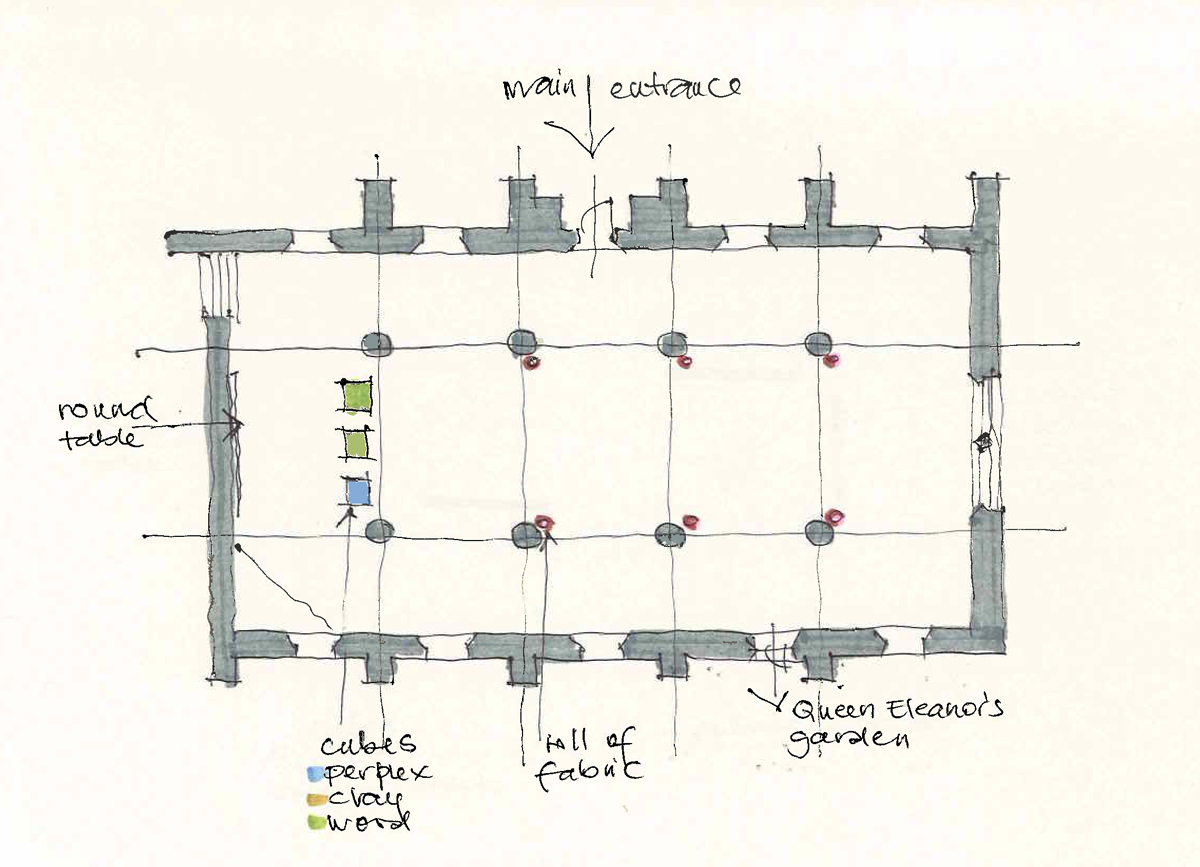 main entrance
round
table
cubes
perplex
clay
wood
roll of
fabric
Queen Eleanor's
garden